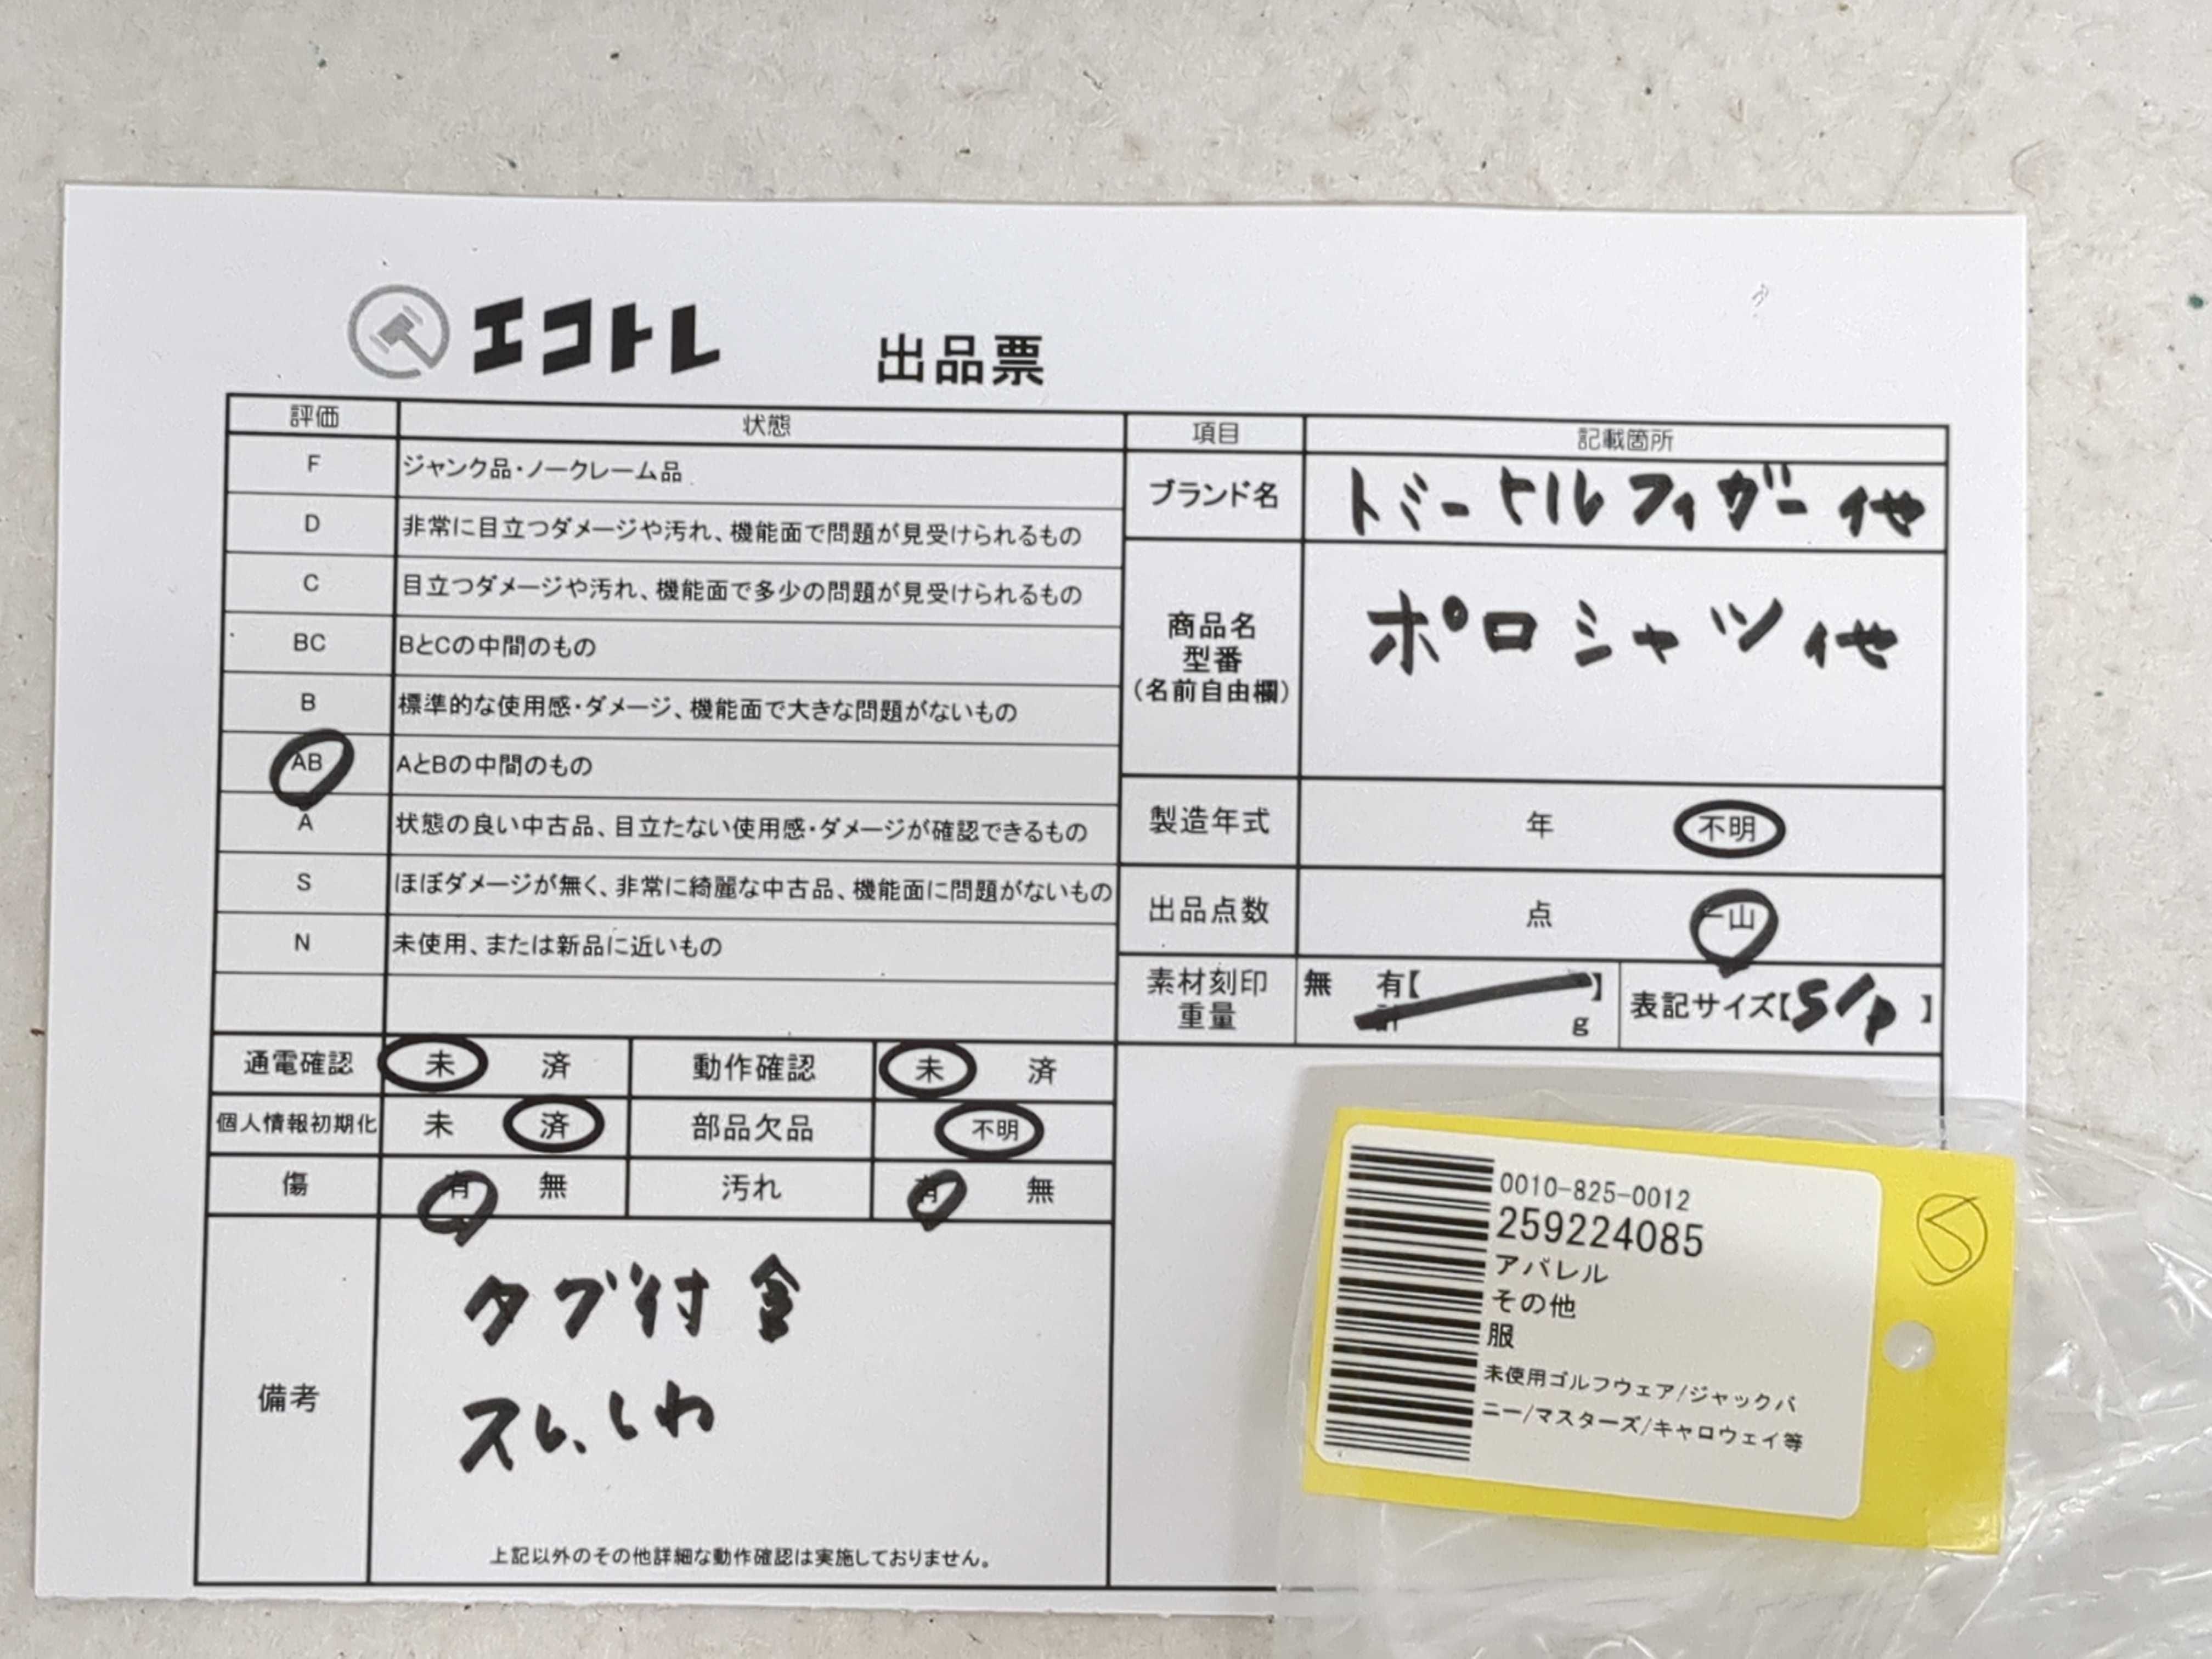 エコトレ 出品票
評価 状態
F ジャンク品・ノークレーム品
D 非常に目立つダメージや汚れ、機能面で問題が見受けられるもの
C 目立つダメージや汚れ、機能面で多少の問題が見受けられるもの
BC BとCの中間のもの
B 標準的な使用感・ダメージ、機能面で大きな問題がないもの
AB AとBの中間のもの
A 状態の良い中古品、目立たない使用感・ダメージが確認できるもの
S ほぼダメージが無く、非常に綺麗な中古品、機能面に問題がないもの
N 未使用、または新品に近いもの
項目 記載箇所
ブランド名 トミーヒルフィガー 他
商品名
型番
(名前自由欄)
ポロシャツ 他
製造年式 年 不明
出品点数 点 一山
素材刻印
重量
無 有【 】
計 g
表記サイズ【S/p】
通電確認 未 済 動作確認 未 済
個人情報初期化 未 済 部品欠品 不明
傷 有 無 汚れ 有 無
備考
タグ付 含
スレ、しわ
上記以外のその他詳細な動作確認は実施しておりません。
0010-825-0012
259224085
アパレル
その他
服
未使用ゴルフウェア/ジャックバ
ニー/マスターズ/キャロウェイ等